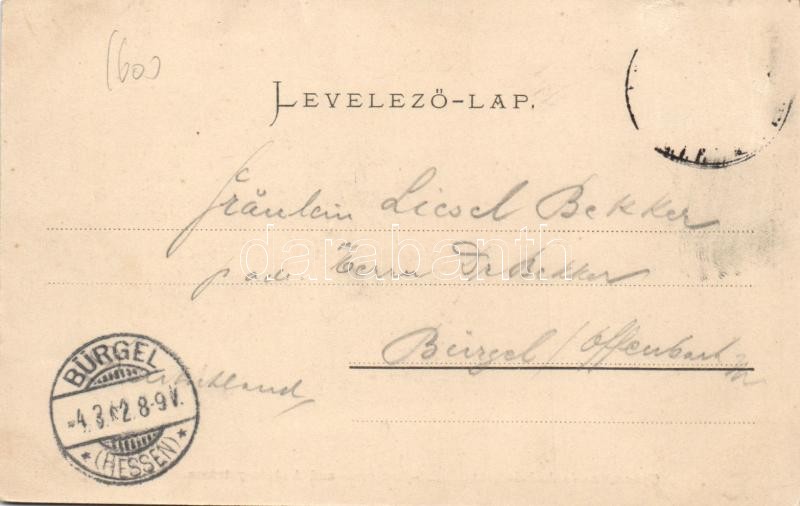 (60)
LEVELEZŐ-LAP.
Fräulein Liesel Bekker
Herrn Dr Bekker
Bürgel / Offenbach
Deutschland
BÜRGEL
4.3.02.8-9V.
* (HESSEN) *
darabanth.com